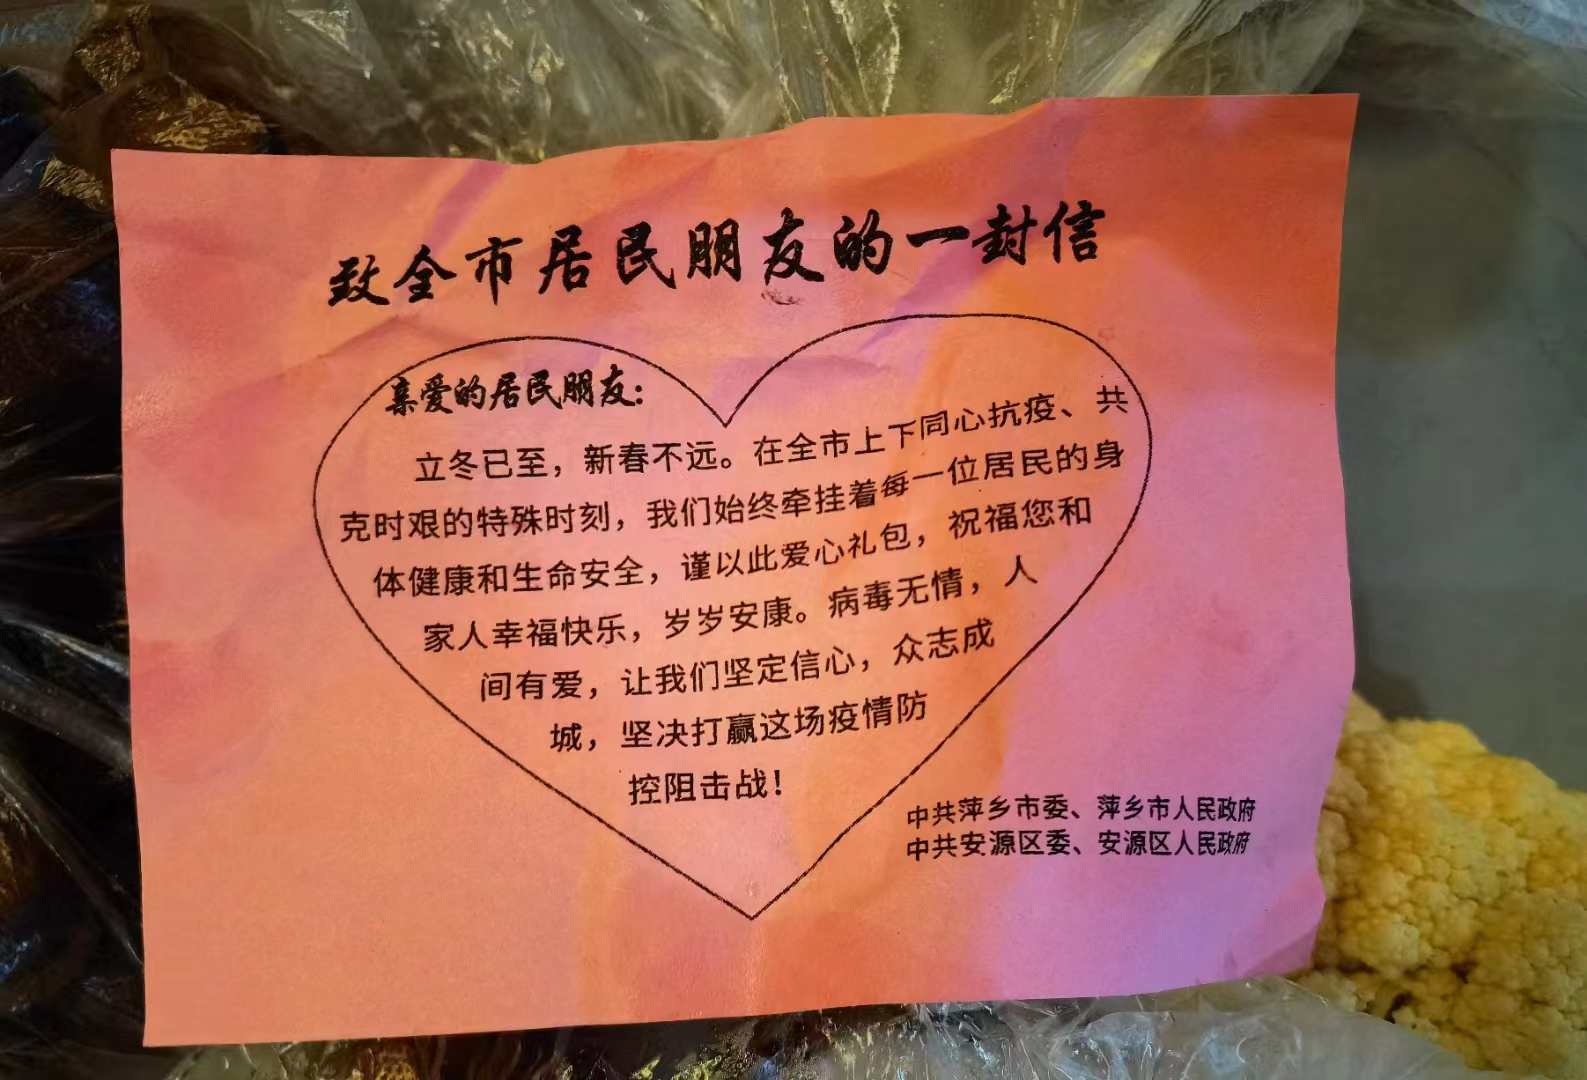 致全市居民朋友的一封信
亲爱的居民朋友：
立冬已至，新春不远。在全市上下同心抗疫、共
克时艰的特殊时刻，我们始终牵挂着每一位居民的身
体健康和生命安全，谨以此爱心礼包，祝福您和
家人幸福快乐，岁岁安康。病毒无情，人
间有爱，让我们坚定信心，众志成
城，坚决打赢这场疫情防
控阻击战！
中共萍乡市委、萍乡市人民政府
中共安源区委、安源区人民政府